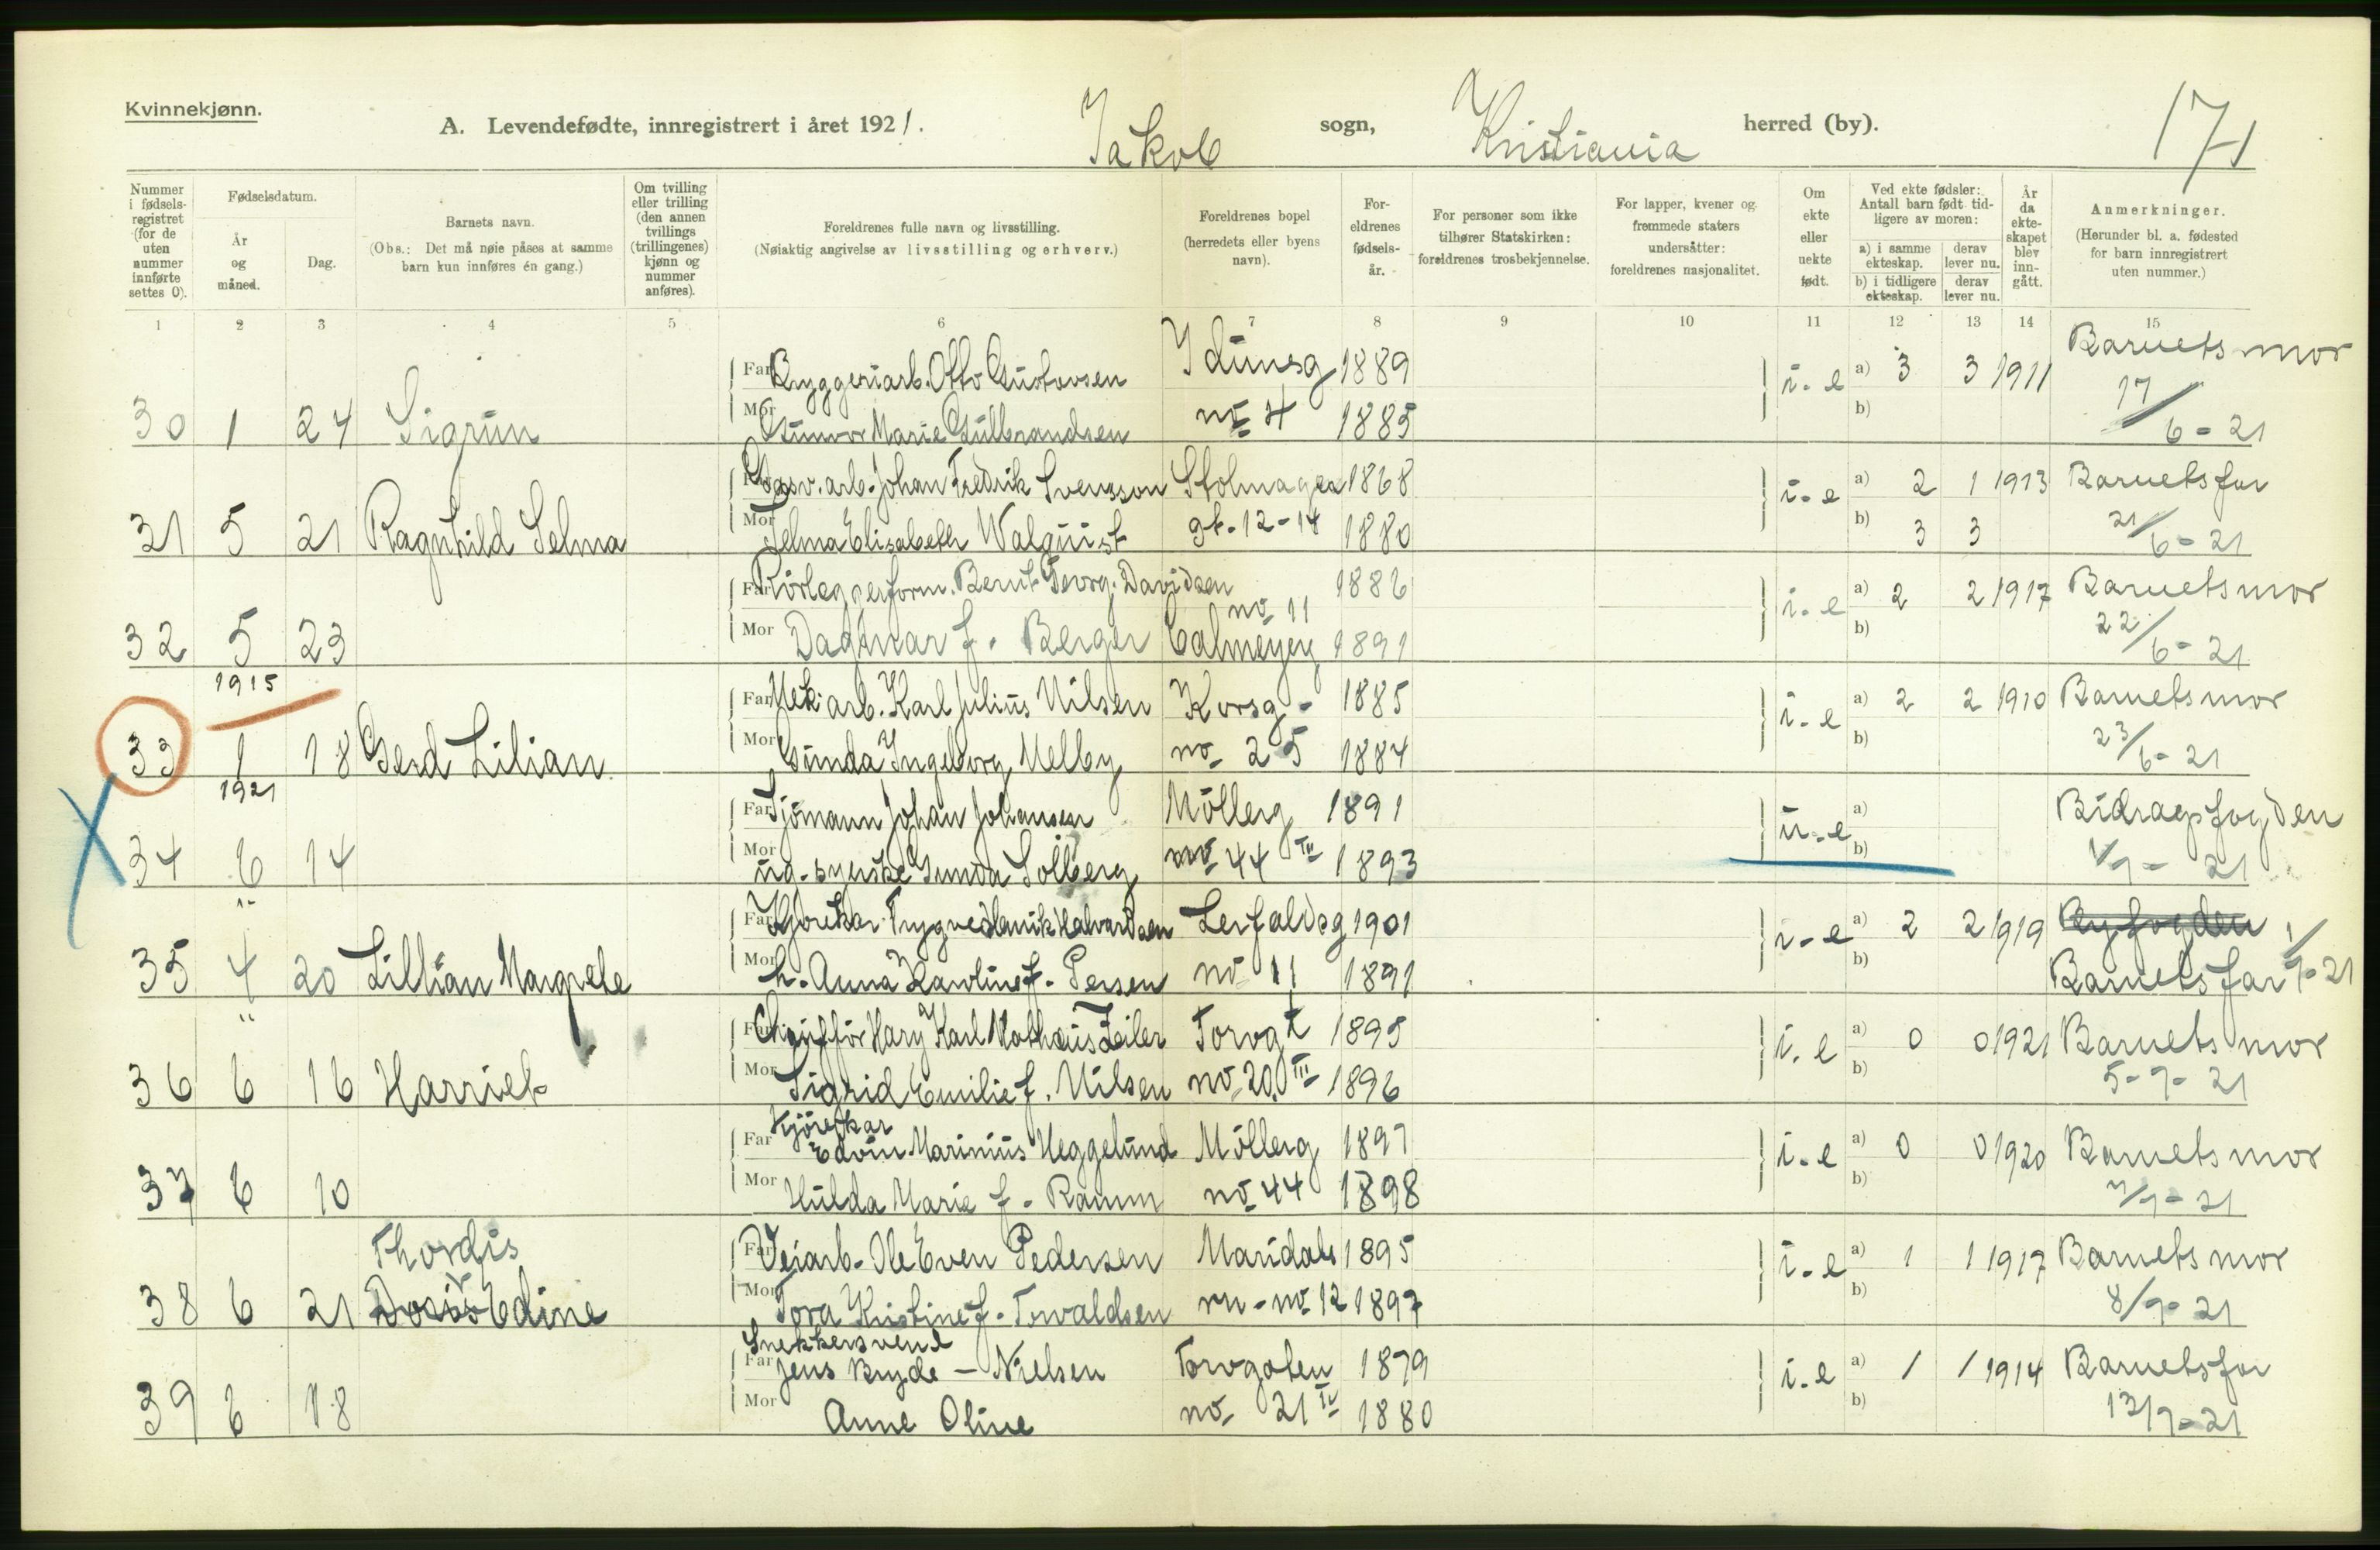 Kvinnekjønn.
A. Levendefødte, innregistrert i året 1921. Jakob sogn, Kristiania herred (by). 171
Nummer i fødselsregistret (for de uten nummer innførte settes 0).
Fødselsdatum.
År og måned.
Dag.
Barnets navn.
(Obs.: Det må nøie påses at samme barn kun innføres én gang.)
Om tvilling eller trilling (den annen tvillings (trillingenes) kjønn og nummer anføres).
Foreldrenes fulle navn og livsstilling.
(Nøiaktig angivelse av livsstilling og erhverv.)
Foreldrenes bopel (herredets eller byens navn).
Foreldrenes fødselsår.
For personer som ikke tilhører Statskirken: foreldrenes trosbekjennelse.
For lapper, kvener og fremmede staters undersåtter: foreldrenes nasjonalitet.
Om ekte eller uekte født.
Ved ekte fødsler: Antall barn født tidligere av moren:
a) i samme ekteskap. derav lever nu.
b) i tidligere ekteskap. derav lever nu.
År da ekteskapet blev inngått.
Anmerkninger.
(Herunder bl. a. fødested for barn innregistrert uten nummer.)
1 2 3 4 5 6 7 8 9 10 11 12 13 14 15
Far Bryggeriarb. Otto Gustavsen Idunsg 1889 i-e a) 3 3 1911 Barnets mor
30 1 24 Sigrun Mor Gunvor Marie Gulbrandsen no 4 1885 b) 17/6-21
Far Gasv. arb. Johan Fredrik Svensson Stolmager 1868 i-e a) 2 1 1913 Barnets far
31 5 21 Ragnhild Selma Mor Selma Elisabeth Walquist gt. 12-14 1880 b) 3 3 21/6-21
Far Rörleggerform. Bernt Georg Davidsen no 11 1886 i-e a) 2 2 1917 Barnets mor
32 5 23 Mor Dagmar f. Berger Calmeyerg 1891 b) 22/6-21
1915
Far Mek. arb. Karl Julius Nilsen Korsg- 1885 i-e a) 2 2 1910 Barnets mor
33 1 18 Gerd Lilian Mor Gunda Ingeborg Melby no 25 1884 b) 23/6-21
1921
Far Sjömann Johan Johansen Möllerg 1891 u-e a) Bidragsfogden
34 6 14 Mor ug. syerske Gunda Solberg no 44 III 1893 b) 1/7-21
"
Far Kjörekar Trygve Halvardsen Lerfaldsg 1901 i-e a) 2 2 1919 Byfogden 1/
35 4 20 Lillian Margrete Mor h. Anna Karoline f. Persen no 11 1891 b) Barnets far 7-21
"
Far Chaufför Hary Karl Mathæus Zeiler Torvgt 1895 i.e a) 0 0 1921 Barnets mor
36 6 16 Harriet Mor Sigrid Emilie f. Nilsen no 20 III 1896 b) 5-7-21
Kjörekar
Far Edvin Marinius Heggelund Möllerg 1897 i-e a) 0 0 1920 Barnets mor
37 6 10 Mor Hulda Marie f. Ramm no 44 1898 b) 7/7-21
Thordis
Far Veiarb. Ole Even Pedersen Maridals 1895 i-e a) 1 1 1917 Barnets mor
38 6 21 Edine Mor Tora Kristine f. Torvaldsen vn - no 12 1897 b) 8/7-21
Snekkersvend
Far Jens Bryde - Nielsen Torvgaten 1879 i-e a) 1 1 1914 Barnets far
39 6 18 Mor Anne Oline no 21 IV 1880 b) 13/7-21